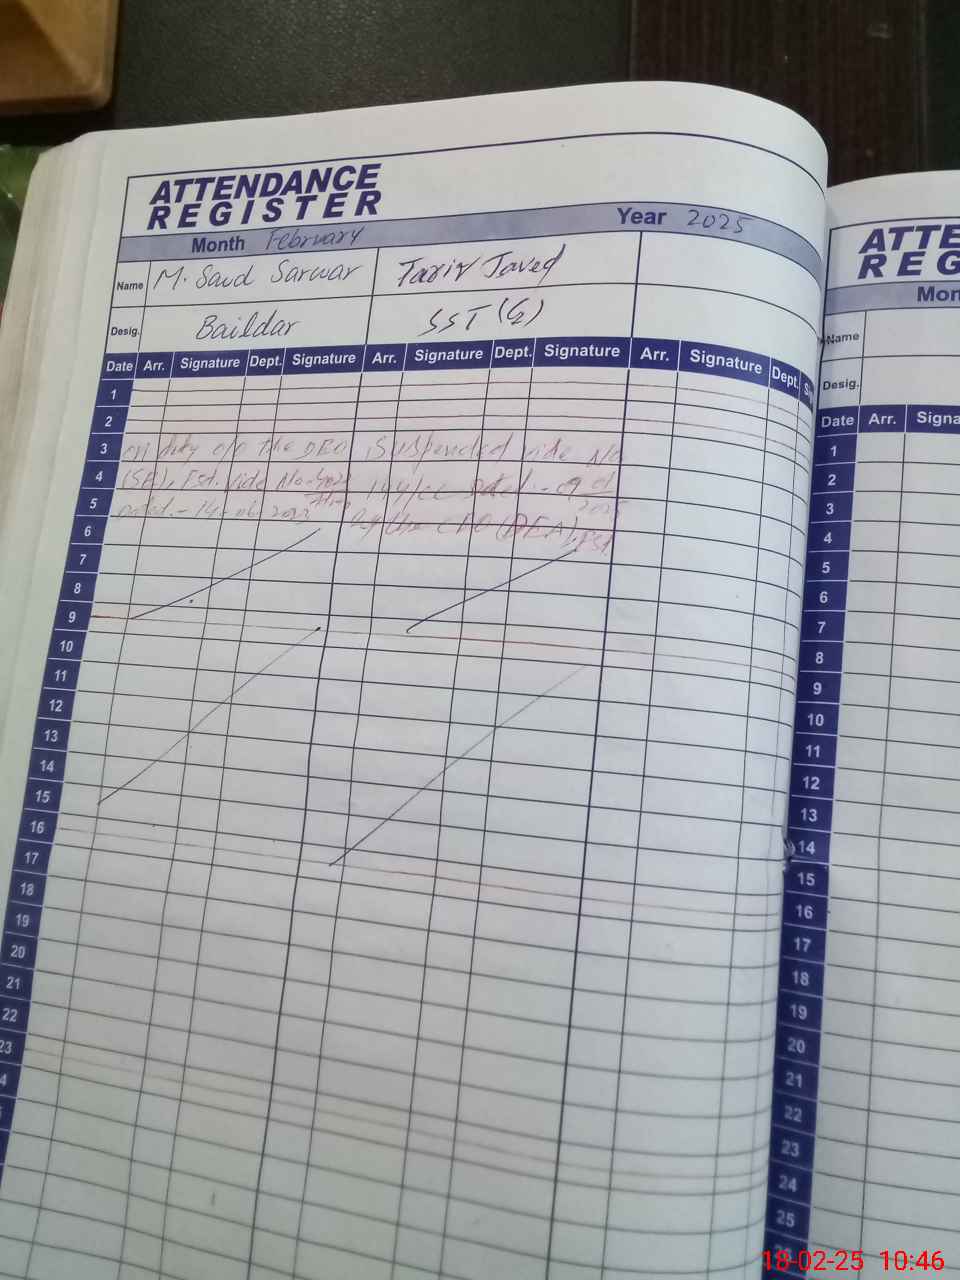 ATTENDANCE
REGISTER
Month February Year 2025
Name M. Saud Sarwar Tariq Javed
Desig. Baildar SST (G)
Date Arr. Signature Dept. Signature Arr. Signature Dept. Signature Arr. Signature Dept.
1
2
3 on duty o/o the DEO Suspended vide No
4 (SE), Est. vide No. 144/cc Dated:-
5 Dated:- 14-06-2023 2025
6 By the CEO (DEA),
7
8
9
10
11
12
13
14
15
16
17
18
19
20
21
22
23
ATTE
REG
Mon
Name
Desig.
Date Arr. Signa
1
2
3
4
5
6
7
8
9
10
11
12
13
14
15
16
17
18
19
20
21
22
23
24
25
18-02-25 10:46